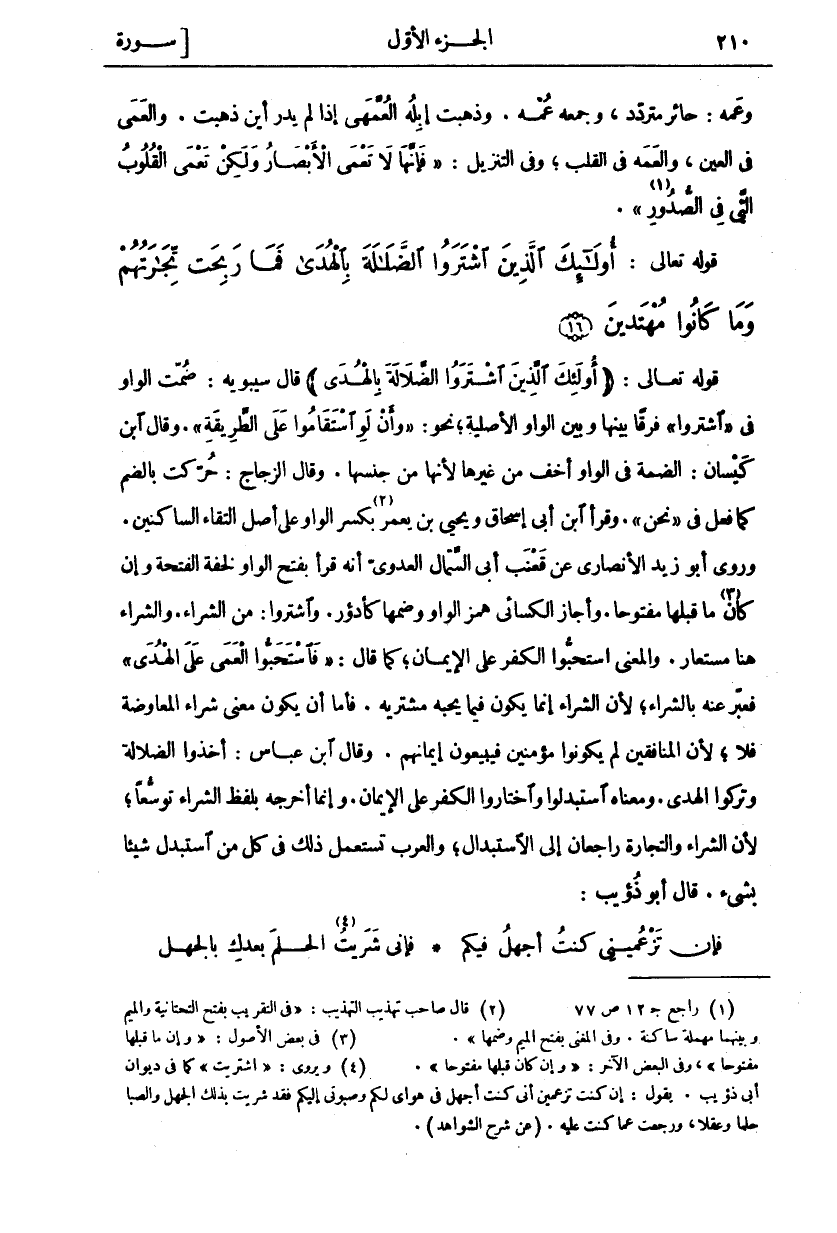 ٢١٠ الجزء الأول [ سورة
وعَمِه : حائر متردّد ، وجمعه عُمْه . وذهبت إبلُه العُمَّهَى إذا لم يدر أين ذهبت . والعَمَى
فى العين ، والعَمَه فى القلب ؛ وفى التنزيل : « فَإِنَّهَا لَا تَعْمَى الْأَبْصَارُ وَلَكِنْ تَعْمَى الْقُلُوبُ
الَّتِي فِي الصُّدُورِ(١) » .
قوله تعالى : أُولَٰٓئِكَ ٱلَّذِينَ ٱشْتَرَوُا ٱلضَّلَٰلَةَ بِٱلْهُدَىٰ فَمَا رَبِحَت تِّجَٰرَتُهُمْ
وَمَا كَانُوا مُهْتَدِينَ ١٦
قوله تعالى : ( أُولَئِكَ ٱلَّذِينَ ٱشْتَرَوُا الضَّلَالَةَ بِالْهُدَى ) قال سيبويه : ضُمّت الواو
فى «ٱشتروا» فرقًا بينها وبين الواو الأصلية؛ نحو: «وأَنْ لَوِ ٱسْتَقَامُوا عَلَى الطَّرِيقَةِ». وقال ٱبن
كَيْسان : الضمة فى الواو أخف من غيرها لأنها من جنسها . وقال الزجاج : حُرّكت بالضم
كما فعل فى «نحن». وقرأ ٱبن أبى إسحاق ويحيى بن يعمر(٢) بكسر الواو على أصل التقاء الساكنين .
وروى أبو زيد الأنصارى عن قَعْنَب أبى السَّمال العدوى أنه قرأ بفتح الواو لخفة الفتحة وإن
كان(٣) ما قبلها مفتوحا . وأجاز الكسائى همز الواو وضمها كأدؤر . وٱشتروا : من الشراء . والشراء
هنا مستعار . والمعنى استحبُّوا الكفر على الإيمان؛ كما قال : « فَٱسْتَحَبُّوا الْعَمَى عَلَى الْهُدَى »
فعبّر عنه بالشراء؛ لأن الشراء إنما يكون فيما يحبه مشتريه . فأما أن يكون معنى شراء المعاوضة
فلا ؛ لأن المنافقين لم يكونوا مؤمنين فيبيعون إيمانهم . وقال ٱبن عباس : أخذوا الضلالة
وتركوا الهدى . ومعناه ٱستبدلوا وٱختاروا الكفر على الإيمان . وإنما أخرجه بلفظ الشراء توسُّعاً؛
لأن الشراء والتجارة راجعان إلى الٱستبدال؛ والعرب تستعمل ذلك فى كل من ٱستبدل شيئا
بشىء . قال أبو ذُؤَيب :
فإن تَزْعُمينى كنتُ أجهلُ فيكم * فإنى شَرَيتُ(٤) الحلمَ بعدكِ بالجهل
(١) راجع جـ ١٢ ص ٧٧ (٢) قال صاحب تهذيب التهذيب : « فى التقريب بفتح التحتانية والميم
وبينهما مهملة ساكنة . وفى المغنى بفتح الميم وضمها » . (٣) فى بعض الأصول : « وإن ما قبلها
مفتوحا » ، وفى البعض الآخر : « وإن كان قبلها مفتوحا » . (٤) ويروى : « اشتريت » كما فى ديوان
أبى ذؤيب . يقول : إن كنت تزعمين أنى كنت أجهل فى هواى لكم وصبوتى إليكم فقد شريت بذلك الجهل والصبا
حلما وعقلا، ورجعت عما كنت عليه . (عن شرح الشواهد) .